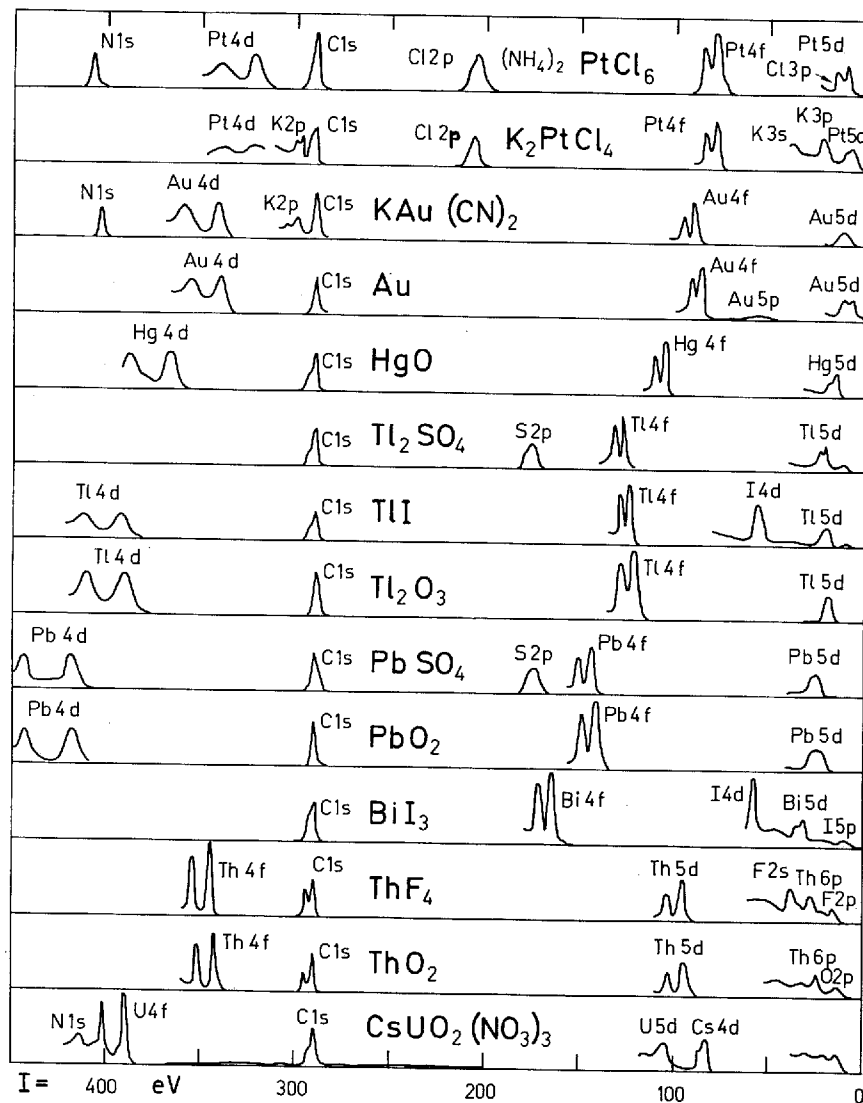 N1s Pt4d C1s Cl2p (NH4)2 PtCl6 Pt4f Pt5d Cl3p
Pt4d K2p C1s Cl2p K2PtCl4 Pt4f K3s K3p Pt5d
N1s Au4d K2p C1s KAu(CN)2 Au4f Au5d
Au4d C1s Au Au4f Au5p Au5d
Hg4d C1s HgO Hg4f Hg5d
C1s Tl2SO4 S2p Tl4f Tl5d
Tl4d C1s TlI Tl4f I4d Tl5d
Tl4d C1s Tl2O3 Tl4f Tl5d
Pb4d C1s PbSO4 S2p Pb4f Pb5d
Pb4d C1s PbO2 Pb4f Pb5d
C1s BiI3 Bi4f I4d Bi5d I5p
Th4f C1s ThF4 Th5d F2s Th6p F2p
Th4f C1s ThO2 Th5d Th6p O2p
N1s U4f C1s CsUO2(NO3)3 U5d Cs4d
I= 400 eV 300 200 100 0